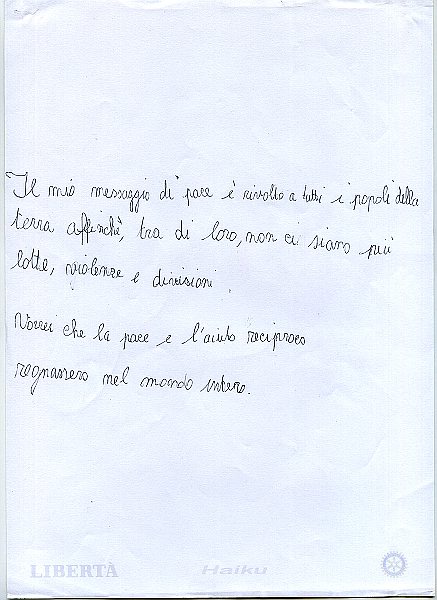 Il mio messaggio di pace è rivolto a tutti i popoli della
terra affinchè, tra di loro, non ci siano più
lotte, violenze e divisioni.
Vorrei che la pace e l'aiuto reciproco
regnassero nel mondo intero.
LIBERTÀ Haiku